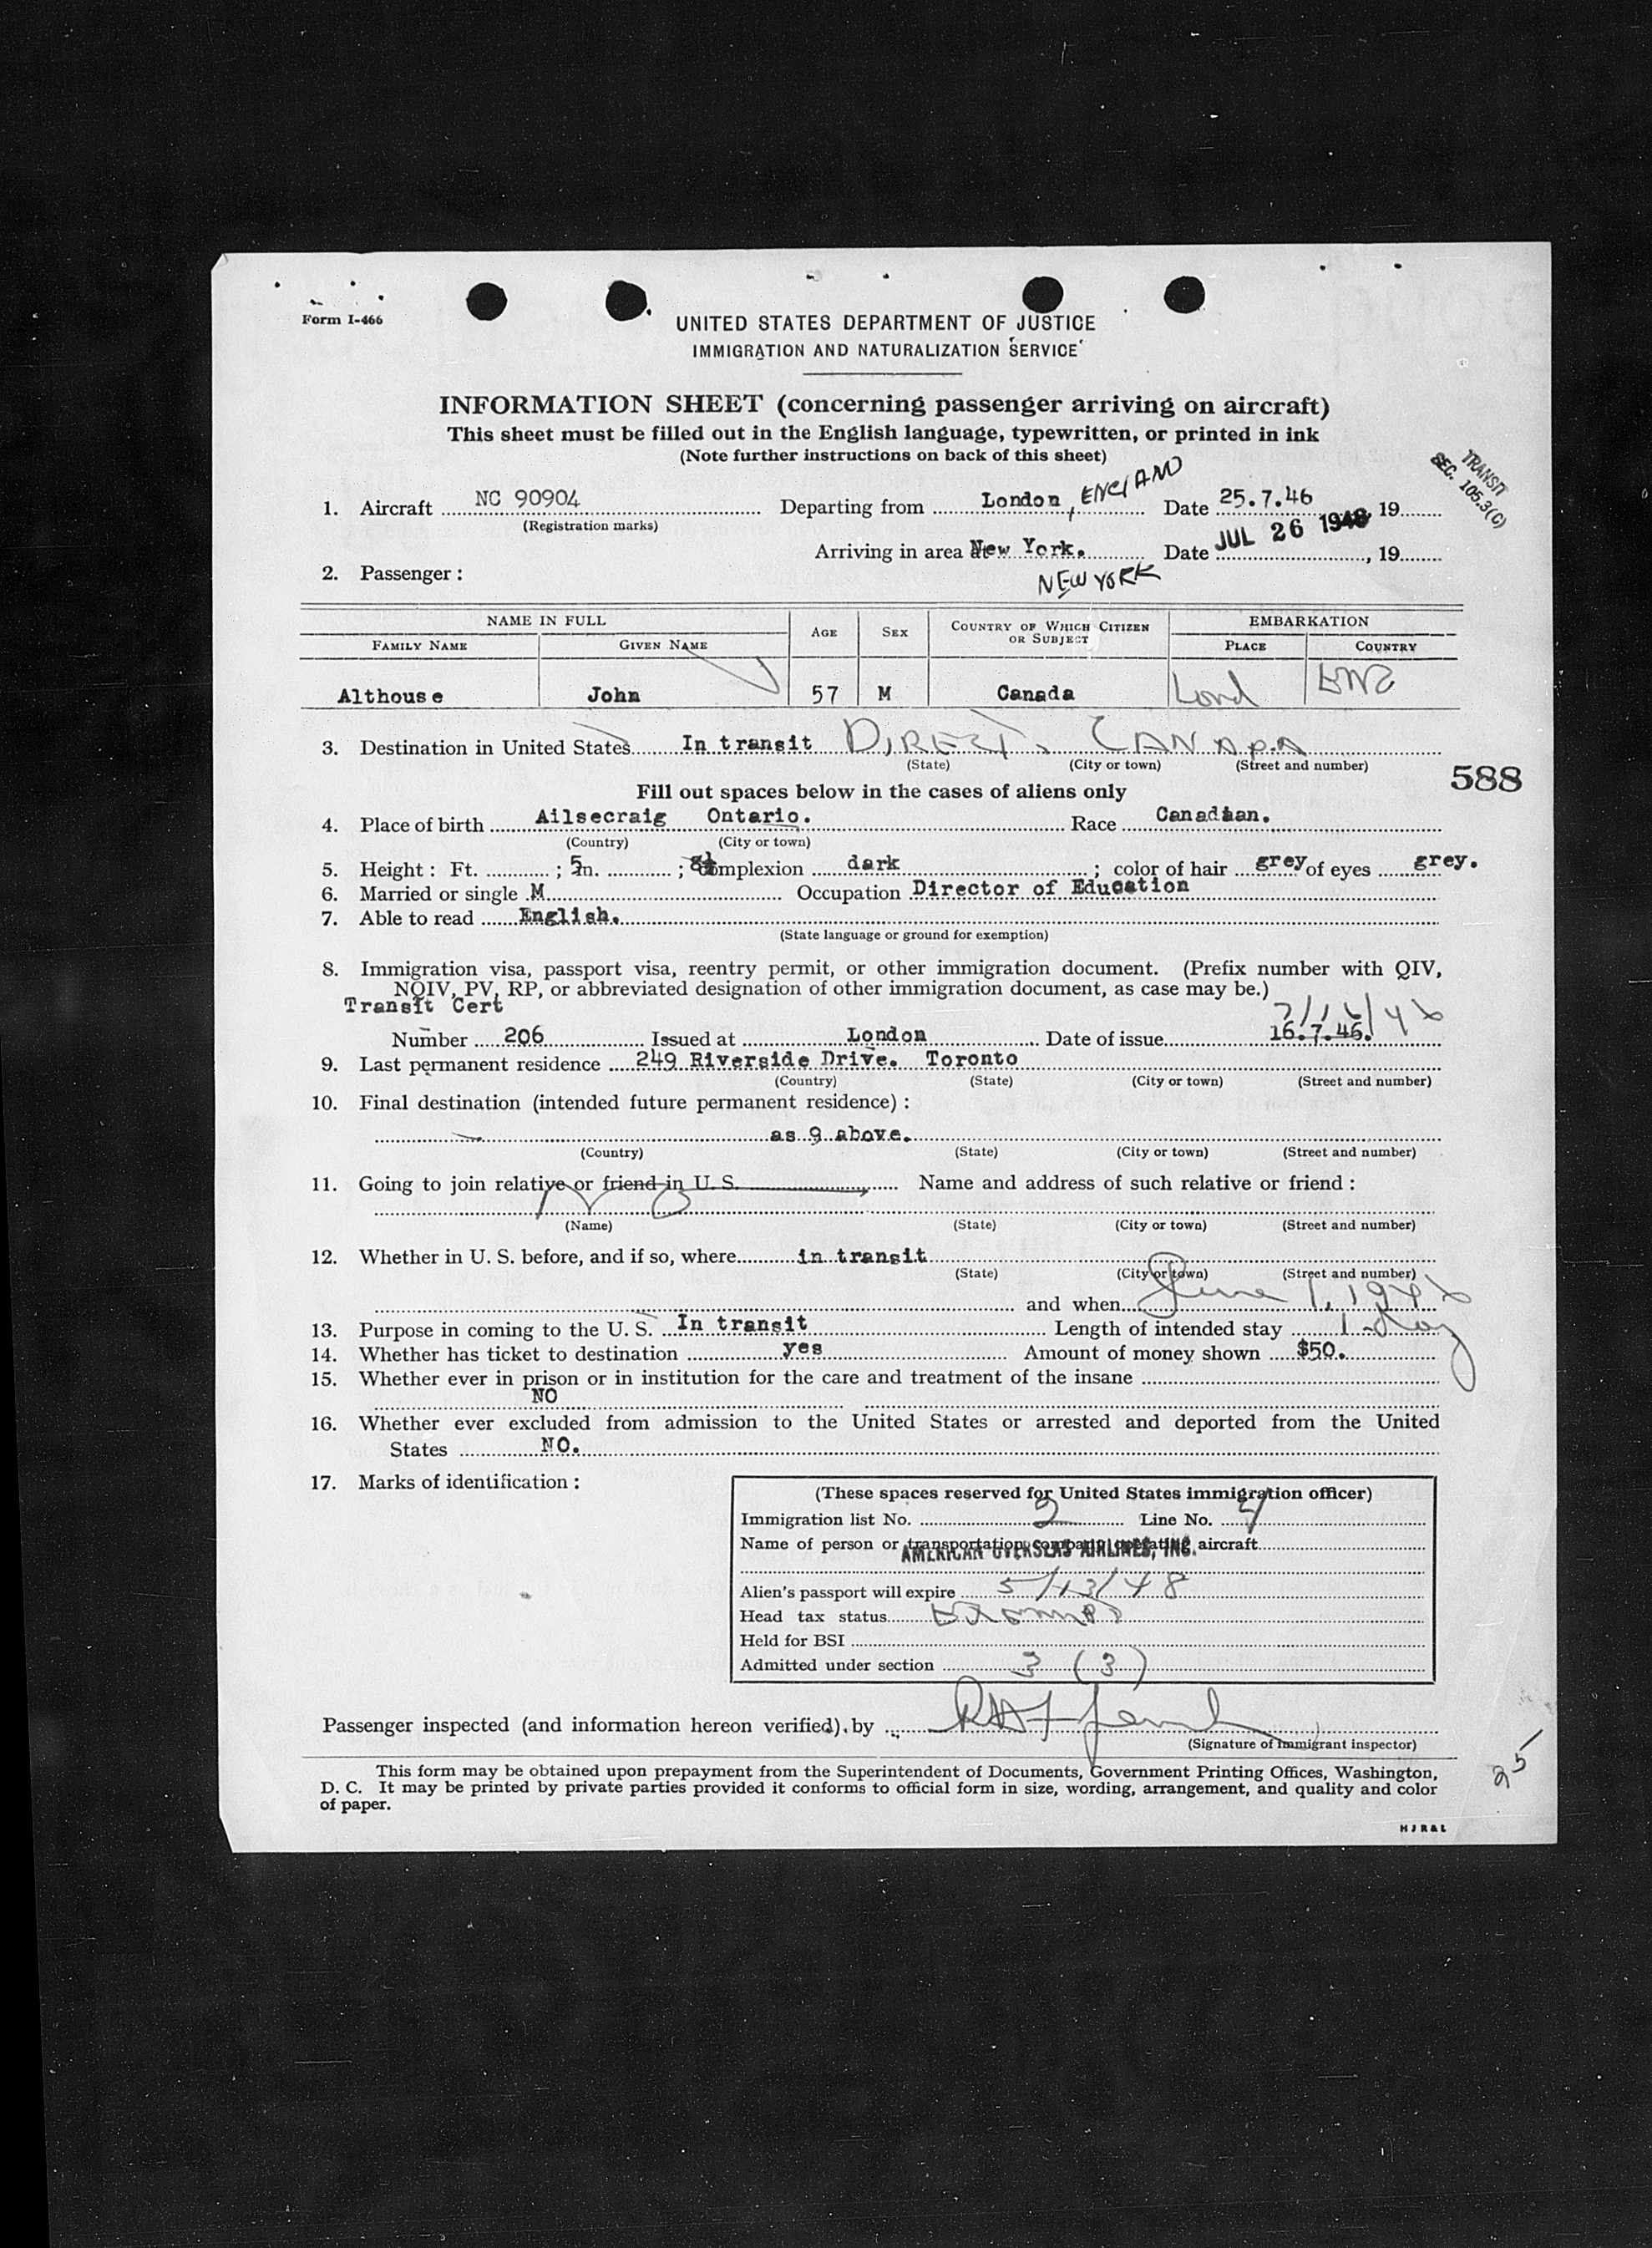 Form I-466
UNITED STATES DEPARTMENT OF JUSTICE
IMMIGRATION AND NATURALIZATION SERVICE
INFORMATION SHEET (concerning passenger arriving on aircraft)
This sheet must be filled out in the English language, typewritten, or printed in ink
(Note further instructions on back of this sheet)
TRANSIT
SEC. 105.3(C)
1. Aircraft NC 90904 Departing from London, ENGLAND Date 25.7.46, 19
(Registration marks)
Arriving in area at New York. Date JUL 26 1946, 19
NEW YORK
2. Passenger:
NAME IN FULL AGE SEX COUNTRY OF WHICH CITIZEN OR SUBJECT EMBARKATION
FAMILY NAME GIVEN NAME PLACE COUNTRY
Althouse John 57 M Canada Lond ENG
3. Destination in United States In transit DIRECT. CANADA
(State) (City or town) (Street and number)
588
Fill out spaces below in the cases of aliens only
4. Place of birth Ailsecraig Ontario. Race Canadian.
(Country) (City or town)
5. Height: Ft. ; 5 In. ; 8½ Complexion dark ; color of hair grey of eyes grey.
6. Married or single M Occupation Director of Education
7. Able to read English.
(State language or ground for exemption)
8. Immigration visa, passport visa, reentry permit, or other immigration document. (Prefix number with QIV,
NQIV, PV, RP, or abbreviated designation of other immigration document, as case may be.)
Transit Cert 7/16/46
Number 206 Issued at London Date of issue 16.7.46.
9. Last permanent residence 249 Riverside Drive. Toronto
(Country) (State) (City or town) (Street and number)
10. Final destination (intended future permanent residence):
as 9 above.
(Country) (State) (City or town) (Street and number)
11. Going to join relative or friend in U. S. Name and address of such relative or friend:
NO
(Name) (State) (City or town) (Street and number)
12. Whether in U. S. before, and if so, where in transit
(State) (City or town) (Street and number)
and when June 1, 1946
13. Purpose in coming to the U. S. In transit Length of intended stay 1-day
14. Whether has ticket to destination yes Amount of money shown $50.
15. Whether ever in prison or in institution for the care and treatment of the insane
NO
16. Whether ever excluded from admission to the United States or arrested and deported from the United
States NO.
17. Marks of identification:
(These spaces reserved for United States immigration officer)
Immigration list No. 2 Line No. 4
Name of person or transportation company operating aircraft
AMERICAN OVERSEAS AIRLINES, INC.
Alien's passport will expire 5/13/48
Head tax status
Held for BSI
Admitted under section 3 (3)
Passenger inspected (and information hereon verified) by
(Signature of immigrant inspector)
This form may be obtained upon prepayment from the Superintendent of Documents, Government Printing Offices, Washington,
D. C. It may be printed by private parties provided it conforms to official form in size, wording, arrangement, and quality and color
of paper.
25
HJR&L